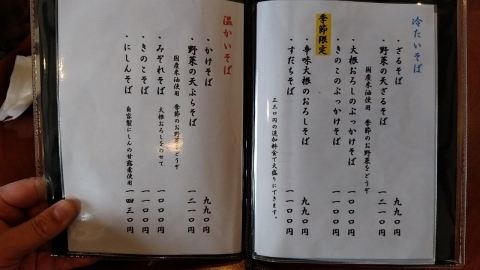 冷たいそば
・ざるそば 九九〇円
・野菜の天ざるそば 一二一〇円
国産米油使用 季節のお野菜をどうぞ
・大根おろしのぶっかけそば 一一〇〇円
・きのこのぶっかけそば 一一〇〇円
季節限定
・辛味大根のおろしそば 一一〇〇円
・すだちそば 九九〇円
三三〇円の追加料金で大盛りにできます。
温かいそば
・かけそば 九九〇円
・野菜の天ぷらそば 一二一〇円
国産米油使用 季節のお野菜をどうぞ
・みぞれそば 大根おろしをのせて 一一〇〇円
・きのこそば 一一〇〇円
・にしんそば 自家製にしんの甘露煮使用 一四三〇円